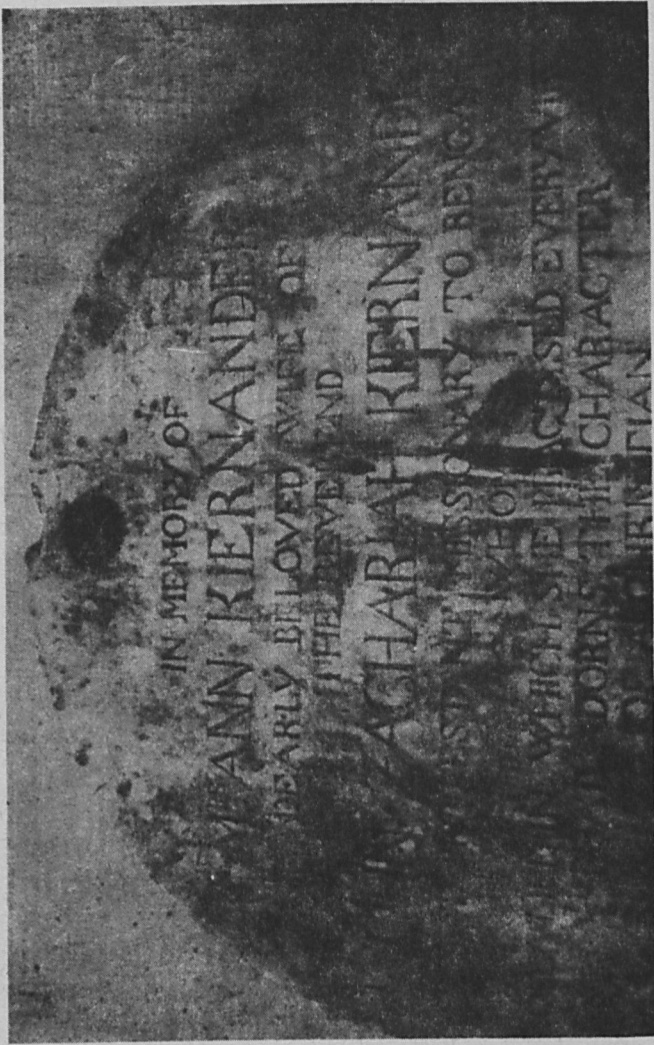 IN MEMORY OF
ANN KIERNANDE
DEARLY BELOVED WIFE OF
THE REVEREND
ACHARIAH KIERNAND
MISSIONARY TO BENGA
WHO
IN WHICH SHE PRACTISED EVERY VI
DORNS THE CHARACTER
CHRISTIAN